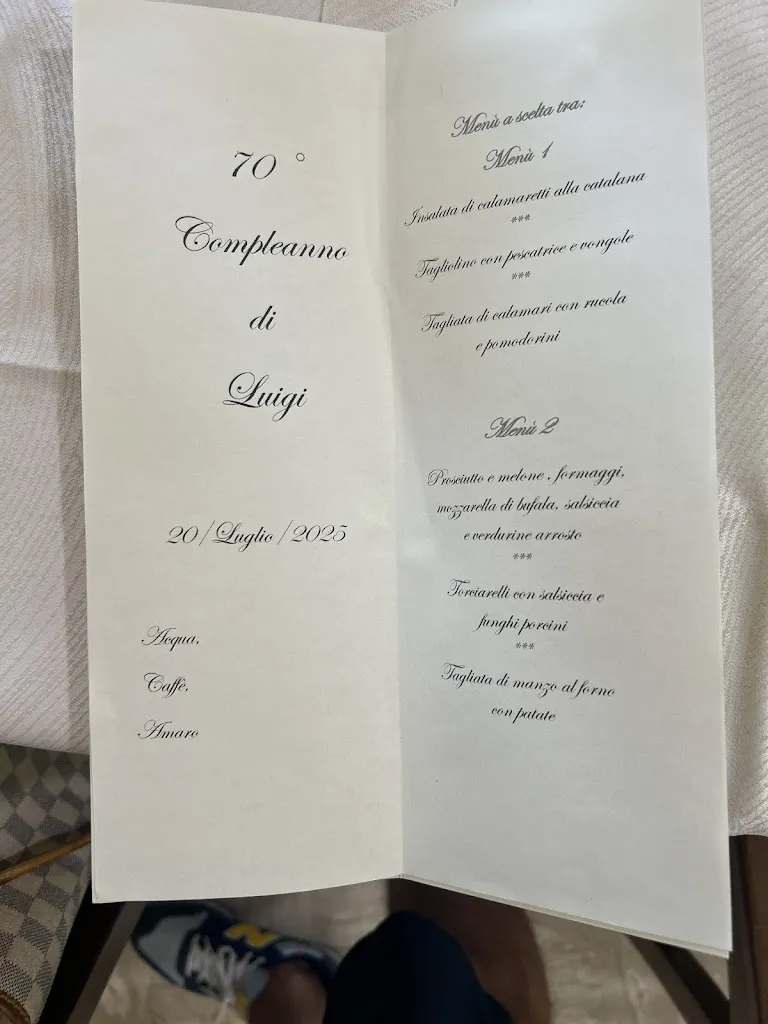 70°
Compleanno
di
Luigi
20/Luglio/2025
Acqua,
Caffè,
Amaro
Menù a scelta tra:
Menù 1
Insalata di calamaretti alla catalana
***
Tagliolino con pescatrice e vongole
***
Tagliata di calamari con rucola
e pomodorini
Menù 2
Prosciutto e melone , formaggi,
mozzarella di bufala, salsiccia
e verdurine arrosto
***
Torciarelli con salsiccia e
funghi porcini
***
Tagliata di manzo al forno
con patate
N